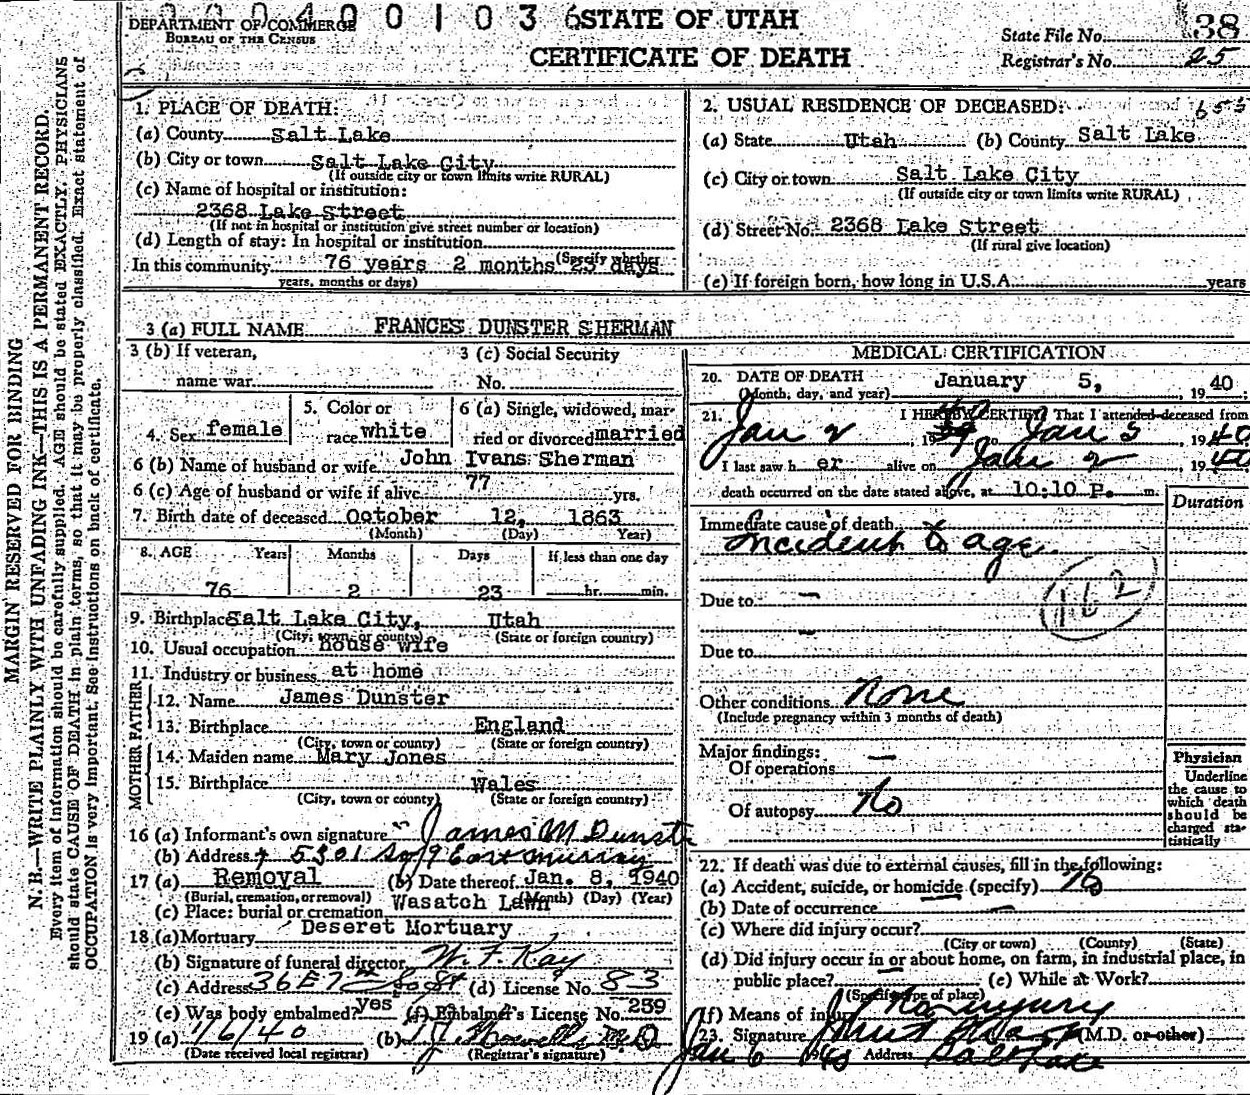 DEPARTMENT OF COMMERCE
BUREAU OF THE CENSUS
STATE OF UTAH
CERTIFICATE OF DEATH
State File No. 38
Registrar's No. 25
MARGIN RESERVED FOR BINDING
N. B.—WRITE PLAINLY WITH UNFADING INK—THIS IS A PERMANENT RECORD.
Every item of information should be carefully supplied. AGE should be stated EXACTLY. PHYSICIANS
should state CAUSE OF DEATH in plain terms, so that it may be properly classified. Exact statement of
OCCUPATION is very important. See instructions on back of certificate.
1. PLACE OF DEATH:
(a) County Salt Lake
(b) City or town Salt Lake City
(If outside city or town limits write RURAL)
(c) Name of hospital or institution:
2368 Lake Street
(If not in hospital or institution give street number or location)
(d) Length of stay: In hospital or institution
(Specify whether
In this community 76 years 2 months 23 days
years, months or days)
2. USUAL RESIDENCE OF DECEASED:
(a) State Utah (b) County Salt Lake
(c) City or town Salt Lake City
(If outside city or town limits write RURAL)
(d) Street No. 2368 Lake Street
(If rural give location)
(e) If foreign born, how long in U.S.A. years
3 (a) FULL NAME FRANCES DUNSTER SHERMAN
3 (b) If veteran,
name war
3 (c) Social Security
No.
4. Sex female
5. Color or
race white
6 (a) Single, widowed, mar-
ried or divorced married
6 (b) Name of husband or wife John Ivans Sherman
6 (c) Age of husband or wife if alive 77 yrs.
7. Birth date of deceased October 12, 1863
(Month) (Day) Year)
8. AGE Years Months Days If less than one day
76 2 23 hr. min.
9. Birthplace Salt Lake City, Utah
(City, town or county) (State or foreign country)
10. Usual occupation house wife
11. Industry or business at home
FATHER
12. Name James Dunster
13. Birthplace England
(City, town or county) (State or foreign country)
MOTHER
14. Maiden name Mary Jones
15. Birthplace Wales
(City, town or county) (State or foreign country)
16 (a) Informant's own signature James M Dunste
(b) Address 5301 So 9 East Murray
17 (a) Removal (b) Date thereof Jan. 8, 1940
(Burial, cremation, or removal) (Month) (Day) (Year)
(c) Place: burial or cremation Wasatch Lawn
18 (a) Mortuary Deseret Mortuary
(b) Signature of funeral director W. F. Kay
(c) Address 36 E 7th (d) License No. 83
(e) Was body embalmed? yes (f) Embalmer's License No. 259
19 (a) 1/6/40 (b) M.D.
(Date received local registrar) (Registrar's signature)
MEDICAL CERTIFICATION
20. DATE OF DEATH January 5, 1940
(Month, day, and year)
21. I HEREBY CERTIFY That I attended deceased from
Jan 2 1940 to Jan 5, 1940
I last saw h er alive on Jan 2, 1940
death occurred on the date stated above, at 10:10 P. m.
Duration
Immediate cause of death
Incident to age.
Due to —
162
Due to
Other conditions None
(Include pregnancy within 3 months of death)
Major findings:
Of operations —
Of autopsy No
Physician
Underline
the cause to
which death
should be
charged sta-
tistically
22. If death was due to external causes, fill in the following:
(a) Accident, suicide, or homicide (specify) No
(b) Date of occurrence —
(c) Where did injury occur?
(City or town) (County) (State)
(d) Did injury occur in or about home, on farm, in industrial place, in
public place? (e) While at Work?
(Specify type of place)
(f) Means of injury No injury
23. Signature (M.D. or other)
Jan 6 1940 Address Salt Lake